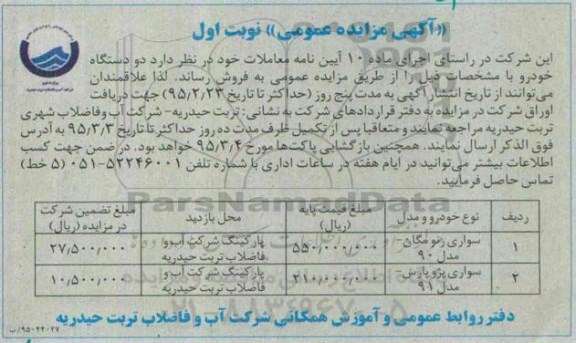 «آگهی مزایده عمومی» نوبت اول
این شرکت در راستای اجرای ماده ۱۰ آیین نامه معاملات خود در نظر دارد دو دستگاه
خودرو با مشخصات ذیل را از طریق مزایده عمومی به فروش رساند، لذا علاقمندان
می‌توانند از تاریخ انتشار آگهی به مدت پنج روز (حداکثر تا تاریخ ۹۵/۲/۲۳) جهت دریافت
اوراق شرکت در مزایده به دفتر قراردادهای شرکت به نشانی: تربت حیدریه- شرکت آب وفاضلاب شهری
تربت حیدریه مراجعه نمایند و متعاقبا پس از تکمیل ظرف مدت ده روز حداکثر تا تاریخ ۹۵/۳/۳ به آدرس
فوق الذکر ارسال نمایند. همچنین بازگشایی پاکت‌ها مورخ ۹۵/۳/۴ خواهد بود، در ضمن جهت کسب
اطلاعات بیشتر می‌توانید در ایام هفته در ساعات اداری با شماره تلفن ۵۲۲۴۶۰۰۱-۰۵۱ (۵ خط)
تماس حاصل فرمایید.
ParsNamadData
ردیف نوع خودرو و مدل مبلغ قیمت پایه (ریال) محل بازدید مبلغ تضمین شرکت در مزایده (ریال)
۱ سواری رنو مگان- مدل ۹۰ ۵۵۰,۰۰۰,۰۰۰ پارکینگ شرکت آب و فاضلاب تربت حیدریه ۲۷,۵۰۰,۰۰۰
۲ سواری پژو پارس- مدل ۹۱ ۲۱۰,۰۰۰,۰۰۰ پارکینگ شرکت آب و فاضلاب تربت حیدریه ۱۰,۵۰۰,۰۰۰
دفتر روابط عمومی و آموزش همگانی شرکت آب و فاضلاب تربت حیدریه
۹۵۰۲۴۰۲۷/ب